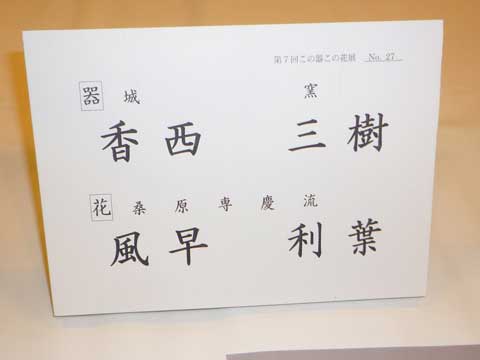 第7回この器この花展 No. 27
器 城 窯
香西 三樹
花 桑原専慶流
風早 利葉